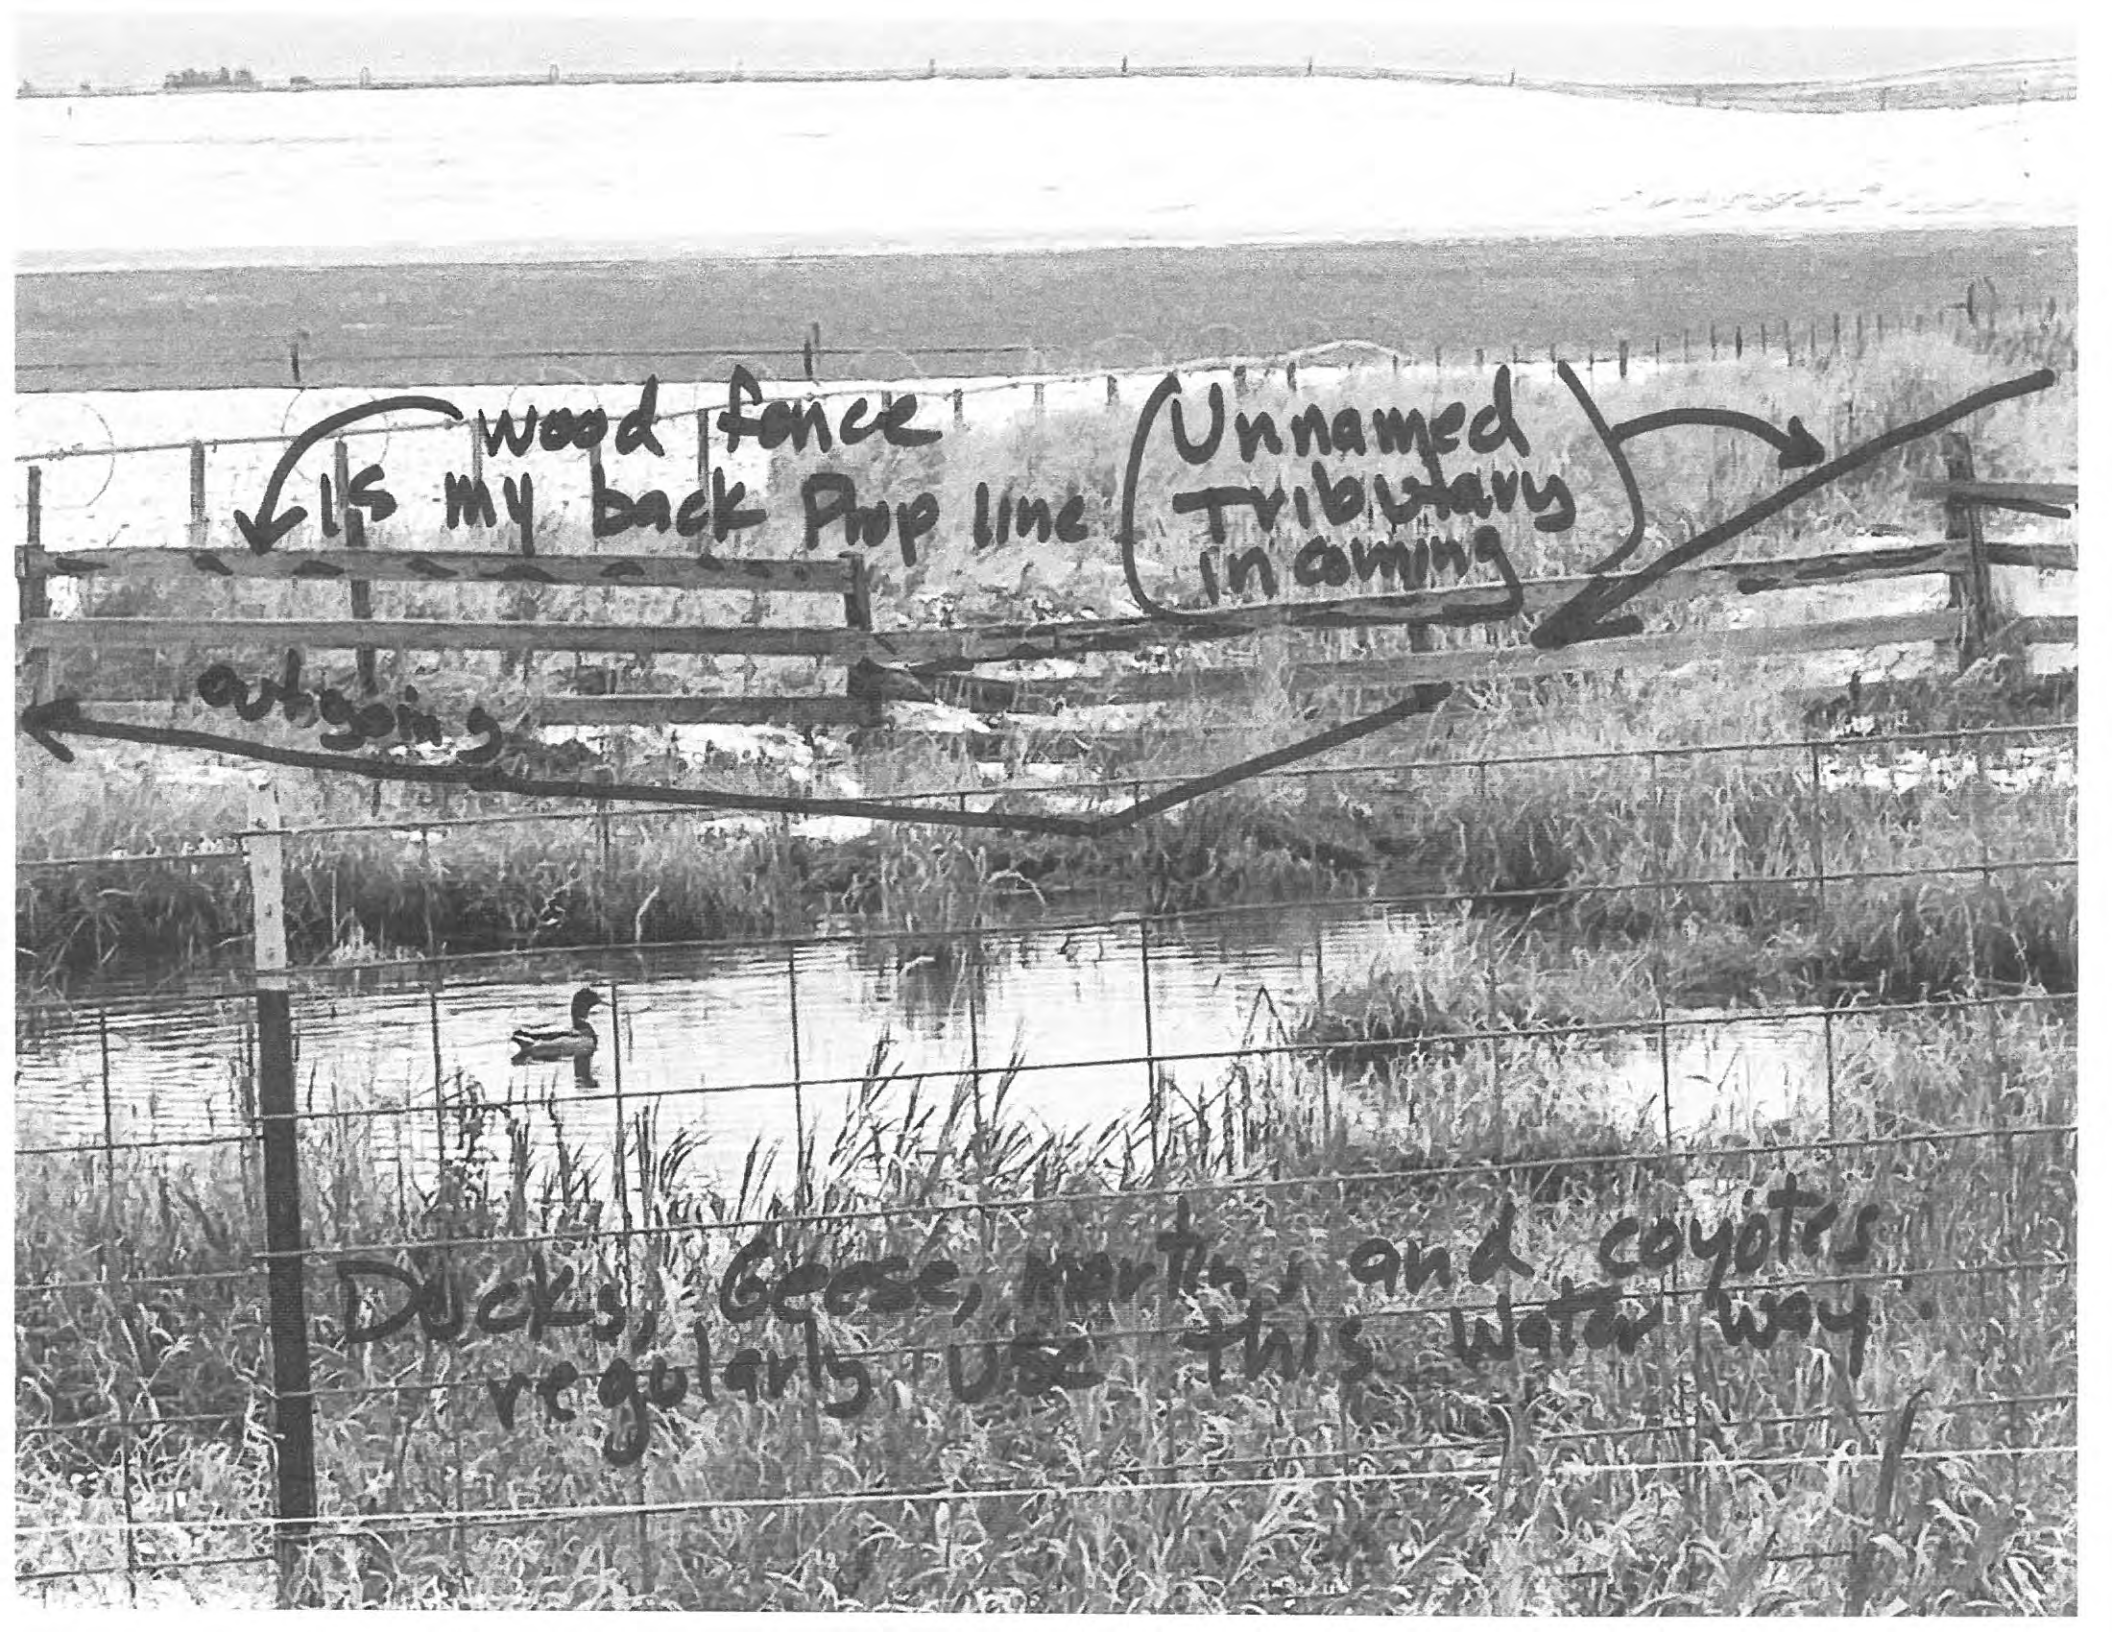 wood fence
is my back Prop line
(Unnamed
Tributary
incoming)
outgoing
Ducks, Geese, martin, and coyotes
regularly use this water way.